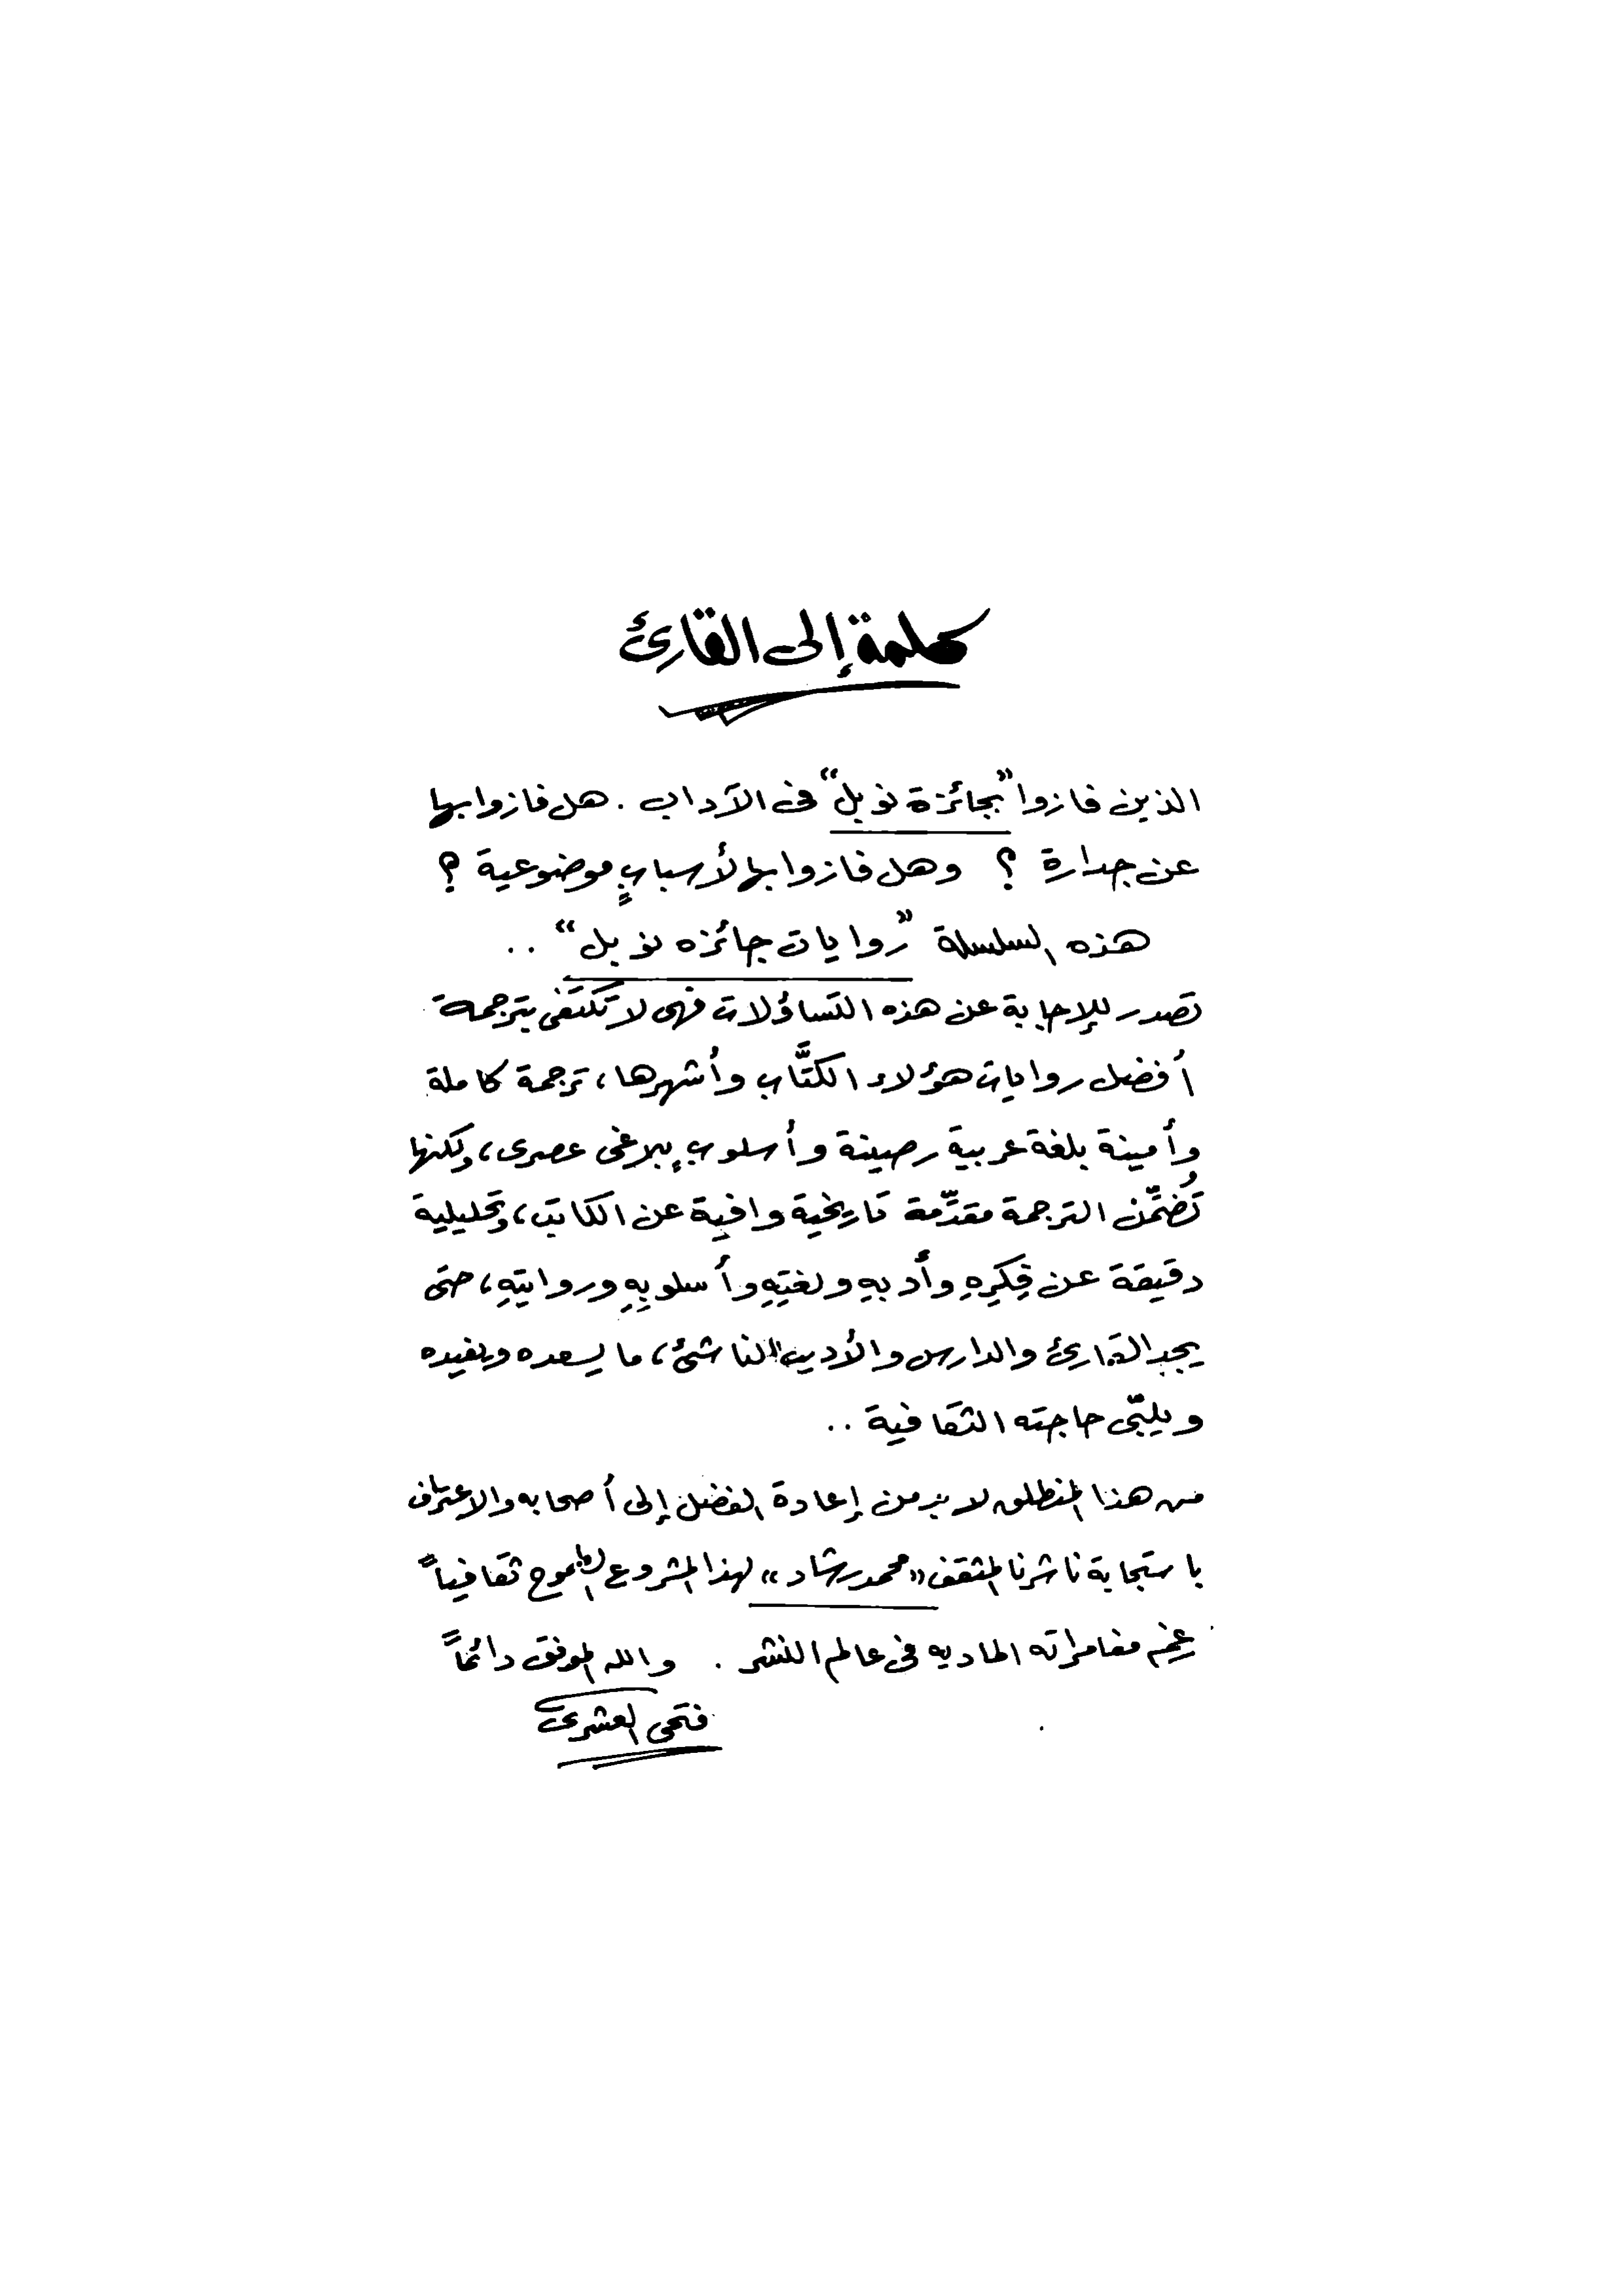 كلمة إلى القارئ
الذين فازوا "بجائزة نوبل" فى الآداب . هل فازوا بها
عن جدارة ؟ وهل فازوا بها لأسبابٍ موضوعية ؟
هذه السلسلة "روايات جائزه نوبل" ..
تصدر للإجابة عن هذه التساؤلات فهى لا تكتفى بترجمة
أفضل روايات هؤلاء الكتَّاب وأشهرها، ترجمة كاملة
وأمينة بلغة عربية رصينة وأسلوبٍ بلاغى عصرى، ولكنها
تُضمِّن الترجمة مقدِّمة تاريخية وافية عن الكاتب، وتحليلية
دقيقة عن فِكرِهِ وأدبهِ ولغتِهِ وأسلوبِهِ وروايتِهِ، حتى
يجد القارئ والدارس والأديب الناشئ، ما يسعده ويفيده
ويلبّى حاجته الثقافية ..
من هذا المنطلق لابد من إعادة الفضل إلى أصحابه والاعتراف
باستجابة ناشرنا المثقف «محمد رشاد» لهذا المشروع الطموح ثقافياً
رغم مغامراته الماديه فى عالم النشر . والله الموفق دائماً
فتحى العشرى